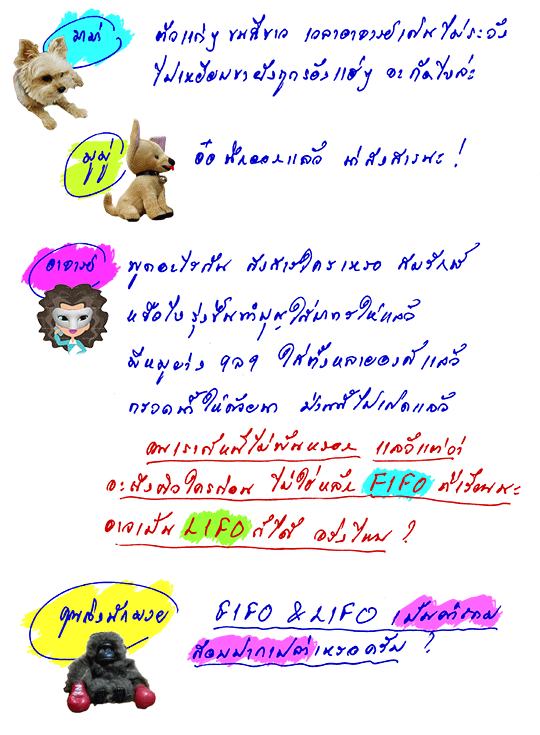 มาม่า
ตัวแก่ๆ ขนสีขาว เวลาอาจารย์เดินไม่ระวัง
ไปเหยียบขายังถูกร้องแฮ่ๆ จะกัดไงล่ะ
มูมู่
อ๋อ นึกออกแล้ว น่าสงสารนะ !
อาจารย์
พูดอะไรกัน สงสารใครเหรอ สมรักษ์
หรือไง รุ่งขึ้นทำบุญใส่บาตรให้แล้ว
มีหมูย่าง ใส่ตั้งหลายองค์แล้ว
กรวดน้ำให้ด้วยนา ป่านนี้ไปเกิดแล้ว
คนเราก็หนีไม่พ้นหรอก แล้วแต่ว่า
จะถึงคิวใครก่อน ไม่ใช่หลัก FIFO ที่เรียนนะ
อาจเป็น LIFO ก็ได้ จริงไหม ?
คุณลิงนักมวย
FIFO & LIFO เป็นคำถาม
ซ้อมปากเปล่าเหรอครับ ?